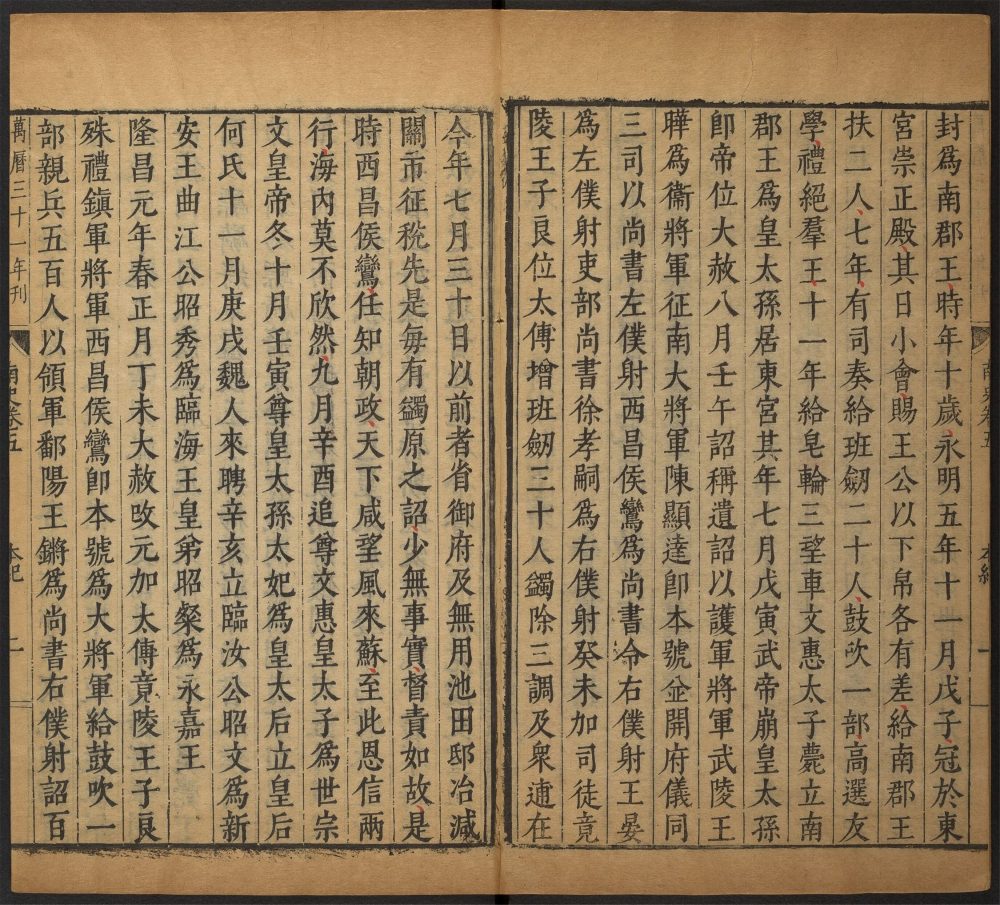 封爲南郡王時年十歲永明五年十一月戊子冠於東
宮崇正殿其日小會賜王公以下帛各有差給南郡王
扶二人七年有司奏給班劒二十人鼓吹一部高選友
學禮絕羣王十一年給皂輪三望車文惠太子薨立南
郡王爲皇太孫居東宮其年七月戊寅武帝崩皇太孫
卽帝位大赦八月壬午詔稱遺詔以護軍將軍武陵王
曄爲衞將軍征南大將軍陳顯達卽本號並開府儀同
三司以尚書左僕射西昌侯鸞爲尚書令右僕射王晏
爲左僕射吏部尚書徐孝嗣爲右僕射癸未加司徒竟
陵王子良位太傅增班劒三十人蠲除三調及衆逋在
今年七月三十日以前者省御府及無用池田邸冶減
關市征稅先是每有蠲原之詔少無事實督責如故是
時西昌侯鸞任知朝政天下咸望風來蘇至此恩信兩
行海內莫不欣然九月辛酉追尊文惠皇太子爲世宗
文皇帝冬十月壬寅尊皇太孫太妃爲皇太后立皇后
何氏十一月庚戌魏人來聘辛亥立臨汝公昭文爲新
安王曲江公昭秀爲臨海王皇弟昭粲爲永嘉王
隆昌元年春正月丁未大赦改元加太傅竟陵王子良
殊禮鎭軍將軍西昌侯鸞卽本號爲大將軍給鼓吹一
部親兵五百人以領軍鄱陽王鏘爲尚書右僕射詔百
萬曆三十一年刊
南史卷五
本紀
二